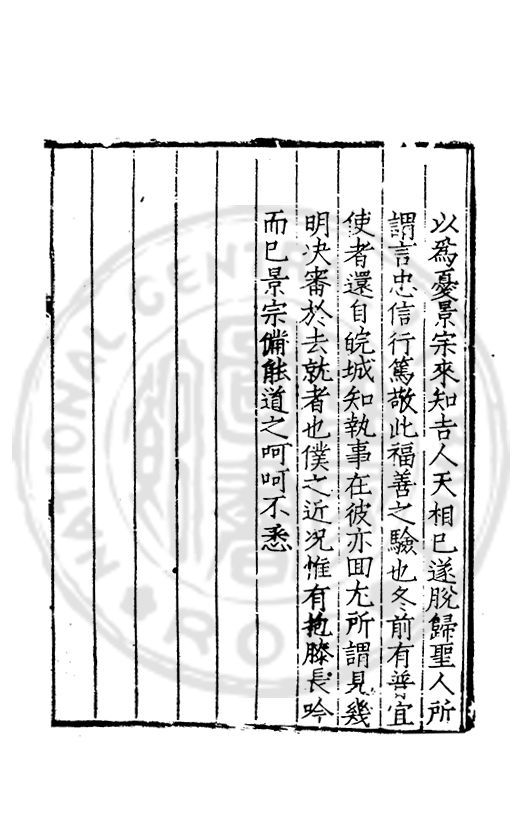 以爲憂景宗來知吉人天相已遂脫歸聖人所
謂言忠信行篤敬此福善之驗也冬前有善宜
使者還自皖城知執事在彼亦回尢所謂見幾
明决審於去就者也僕之近况惟有抱膝長吟
而已景宗備能道之呵呵不悉
NATIONAL CENTRAL